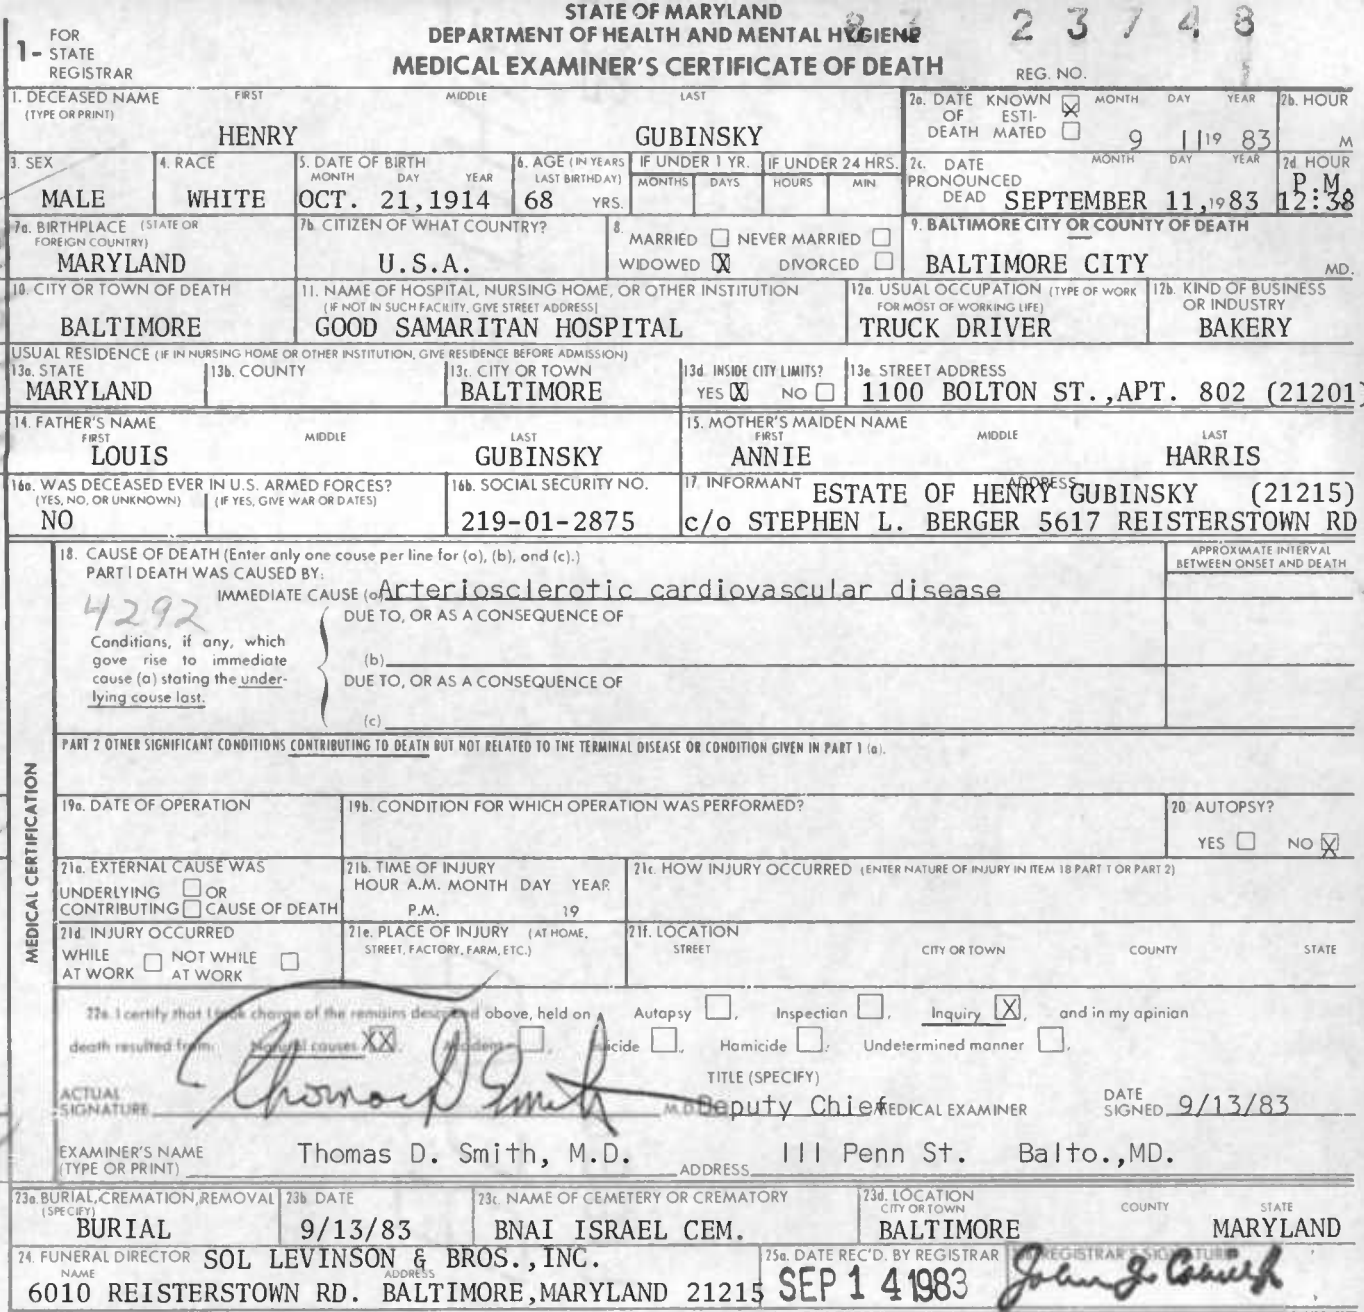 STATE OF MARYLAND
DEPARTMENT OF HEALTH AND MENTAL HYGIENE
MEDICAL EXAMINER'S CERTIFICATE OF DEATH
1- FOR STATE REGISTRAR
83 23748
REG. NO.
1. DECEASED NAME (TYPE OR PRINT) FIRST MIDDLE LAST
HENRY GUBINSKY
2a. DATE OF DEATH KNOWN ☒ ESTIMATED ☐ MONTH DAY YEAR
9 11 19 83
2b. HOUR
M
3. SEX
MALE
4. RACE
WHITE
5. DATE OF BIRTH MONTH DAY YEAR
OCT. 21,1914
6. AGE (IN YEARS LAST BIRTHDAY)
68 YRS.
IF UNDER 1 YR. MONTHS DAYS
IF UNDER 24 HRS. HOURS MIN
2c. DATE PRONOUNCED DEAD MONTH DAY YEAR
SEPTEMBER 11,1983
2d HOUR
P.M.
12:38
7a. BIRTHPLACE (STATE OR FOREIGN COUNTRY)
MARYLAND
7b. CITIZEN OF WHAT COUNTRY?
U.S.A.
8. MARRIED ☐ NEVER MARRIED ☐
WIDOWED ☒ DIVORCED ☐
9. BALTIMORE CITY OR COUNTY OF DEATH
BALTIMORE CITY MD.
10. CITY OR TOWN OF DEATH
BALTIMORE
11. NAME OF HOSPITAL, NURSING HOME, OR OTHER INSTITUTION
(IF NOT IN SUCH FACILITY, GIVE STREET ADDRESS)
GOOD SAMARITAN HOSPITAL
12a. USUAL OCCUPATION (TYPE OF WORK FOR MOST OF WORKING LIFE)
TRUCK DRIVER
12b. KIND OF BUSINESS OR INDUSTRY
BAKERY
USUAL RESIDENCE (IF IN NURSING HOME OR OTHER INSTITUTION, GIVE RESIDENCE BEFORE ADMISSION)
13a. STATE
MARYLAND
13b. COUNTY
13c. CITY OR TOWN
BALTIMORE
13d. INSIDE CITY LIMITS?
YES ☒ NO ☐
13e. STREET ADDRESS
1100 BOLTON ST.,APT. 802 (21201)
14. FATHER'S NAME FIRST MIDDLE LAST
LOUIS GUBINSKY
15. MOTHER'S MAIDEN NAME FIRST MIDDLE LAST
ANNIE HARRIS
16a. WAS DECEASED EVER IN U.S. ARMED FORCES?
(YES, NO, OR UNKNOWN) (IF YES, GIVE WAR OR DATES)
NO
16b. SOCIAL SECURITY NO.
219-01-2875
17. INFORMANT ADDRESS
ESTATE OF HENRY GUBINSKY (21215)
c/o STEPHEN L. BERGER 5617 REISTERSTOWN RD
MEDICAL CERTIFICATION
18. CAUSE OF DEATH (Enter only one cause per line for (a), (b), and (c).)
PART I DEATH WAS CAUSED BY:
IMMEDIATE CAUSE (a) Arteriosclerotic cardiovascular disease
APPROXIMATE INTERVAL BETWEEN ONSET AND DEATH
4292
DUE TO, OR AS A CONSEQUENCE OF
Conditions, if any, which gave rise to immediate cause (a) stating the underlying cause last.
(b)
DUE TO, OR AS A CONSEQUENCE OF
(c)
PART 2 OTHER SIGNIFICANT CONDITIONS CONTRIBUTING TO DEATH BUT NOT RELATED TO THE TERMINAL DISEASE OR CONDITION GIVEN IN PART 1 (a).
19a. DATE OF OPERATION
19b. CONDITION FOR WHICH OPERATION WAS PERFORMED?
20 AUTOPSY?
YES ☐ NO ☒
21a. EXTERNAL CAUSE WAS
UNDERLYING ☐ OR
CONTRIBUTING ☐ CAUSE OF DEATH
21b. TIME OF INJURY
HOUR A.M. MONTH DAY YEAR
P.M. 19
21c. HOW INJURY OCCURRED (ENTER NATURE OF INJURY IN ITEM 18 PART 1 OR PART 2)
21d. INJURY OCCURRED
WHILE AT WORK ☐ NOT WHILE AT WORK ☐
21e. PLACE OF INJURY (AT HOME, STREET, FACTORY, FARM, ETC.)
21f. LOCATION
STREET CITY OR TOWN COUNTY STATE
22a. I certify that I took charge of the remains described above, held on Autopsy ☐, Inspection ☐, Inquiry ☒, and in my opinion
death resulted from: Natural causes XX, Accident ☐, Suicide ☐, Homicide ☐, Undetermined manner ☐.
ACTUAL SIGNATURE Thomas D Smith M.D.
TITLE (SPECIFY)
Deputy Chief MEDICAL EXAMINER
DATE SIGNED 9/13/83
EXAMINER'S NAME (TYPE OR PRINT) Thomas D. Smith, M.D. ADDRESS 111 Penn St. Balto.,MD.
23a. BURIAL, CREMATION, REMOVAL (SPECIFY)
BURIAL
23b DATE
9/13/83
23c. NAME OF CEMETERY OR CREMATORY
BNAI ISRAEL CEM.
23d. LOCATION CITY OR TOWN COUNTY STATE
BALTIMORE MARYLAND
24. FUNERAL DIRECTOR NAME ADDRESS
SOL LEVINSON & BROS.,INC.
6010 REISTERSTOWN RD. BALTIMORE,MARYLAND 21215
25a. DATE REC'D. BY REGISTRAR
SEP 14 1983
REGISTRAR'S SIGNATURE
John J.